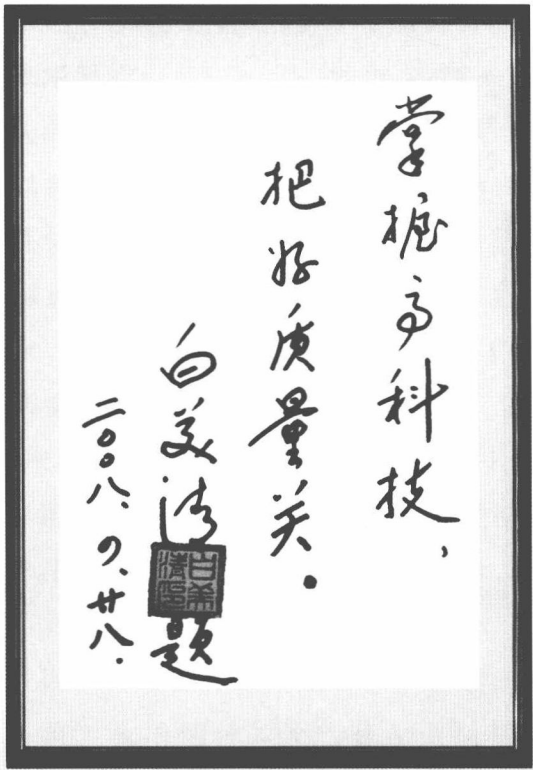 掌握高科技，
把好质量关。
白美清题
白美清印
二〇〇八、廿八.